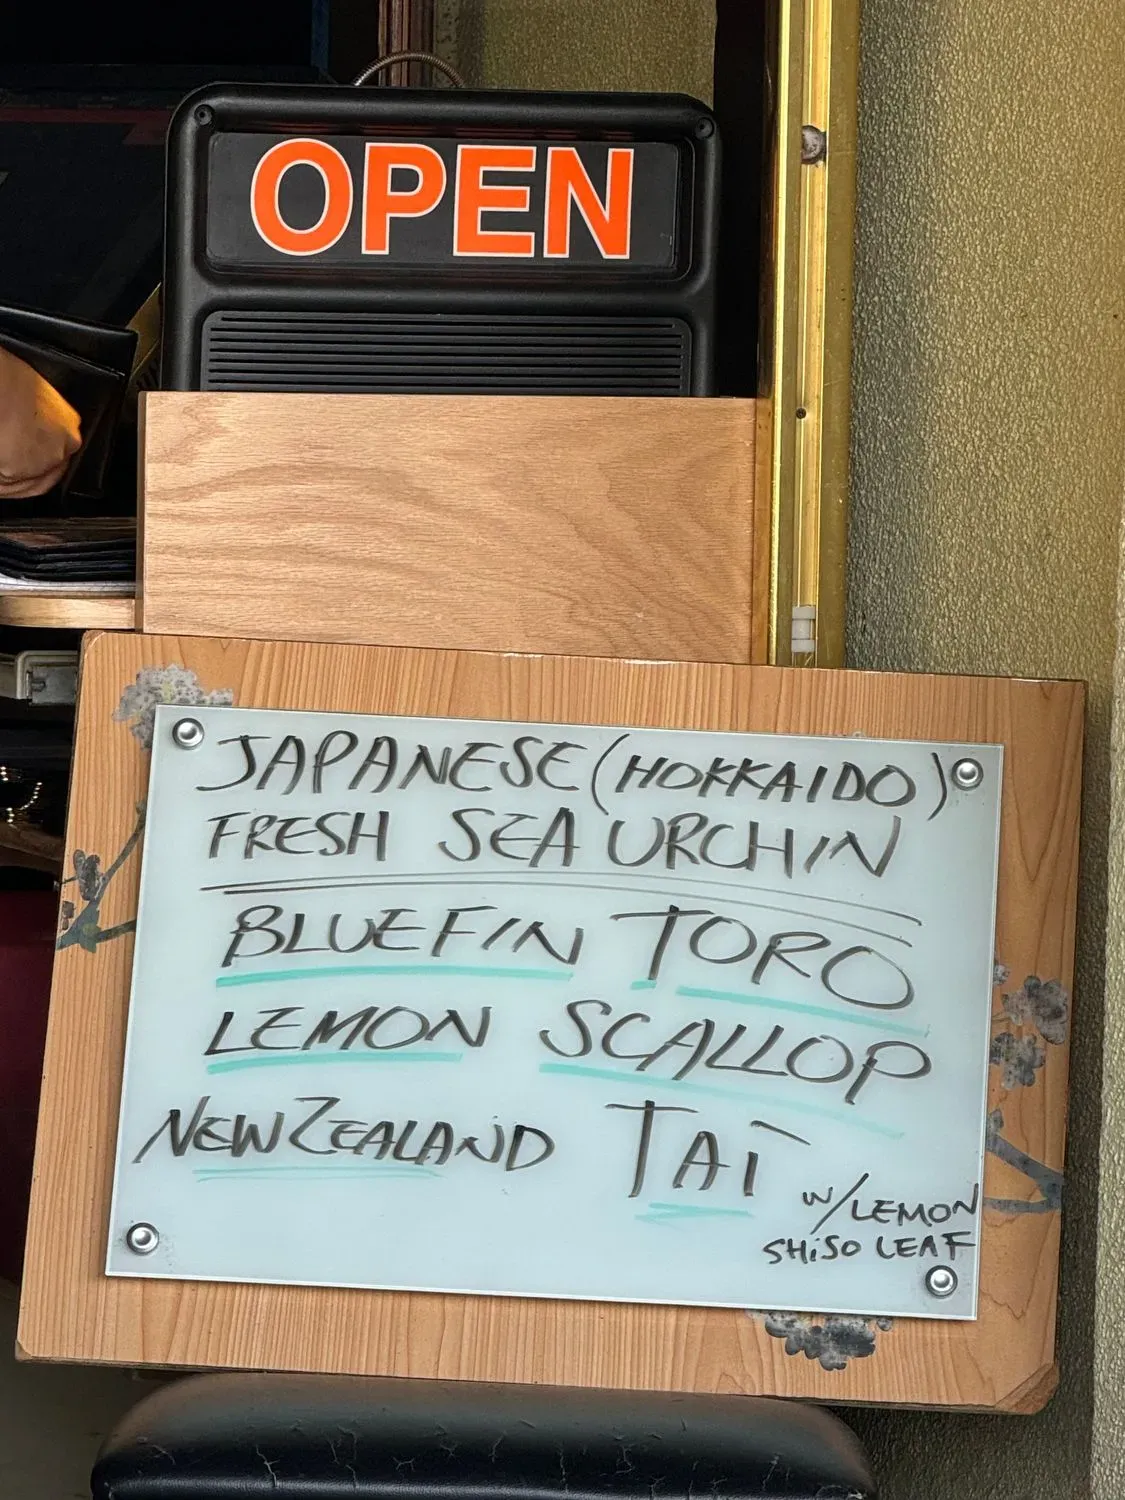 OPEN
JAPANESE (HOKKAIDO)
FRESH SEA URCHIN
BLUEFIN TORO
LEMON SCALLOP
NEW ZEALAND TAI
W/LEMON
SHISO LEAF